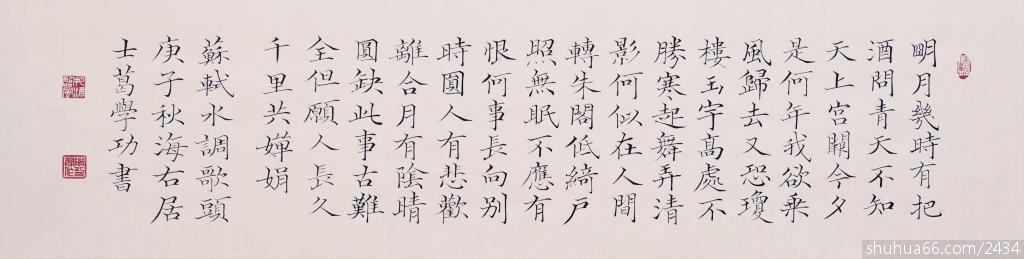 眀月幾時有把
酒問青天不知
天上宫闕今夕
是何年我欲乘
風歸去又恐瓊
樓玉宇高處不
勝寒起舞弄清
影何似在人間
轉朱閣低綺戶
照無眠不應有
恨何事長向别
時圓人有悲歡
離合月有陰晴
圓缺此事古難
全但願人長久
千里共嬋娟
蘇軾水調歌頭
庚子秋海右居
士葛學功書
shuhua66.com/2434